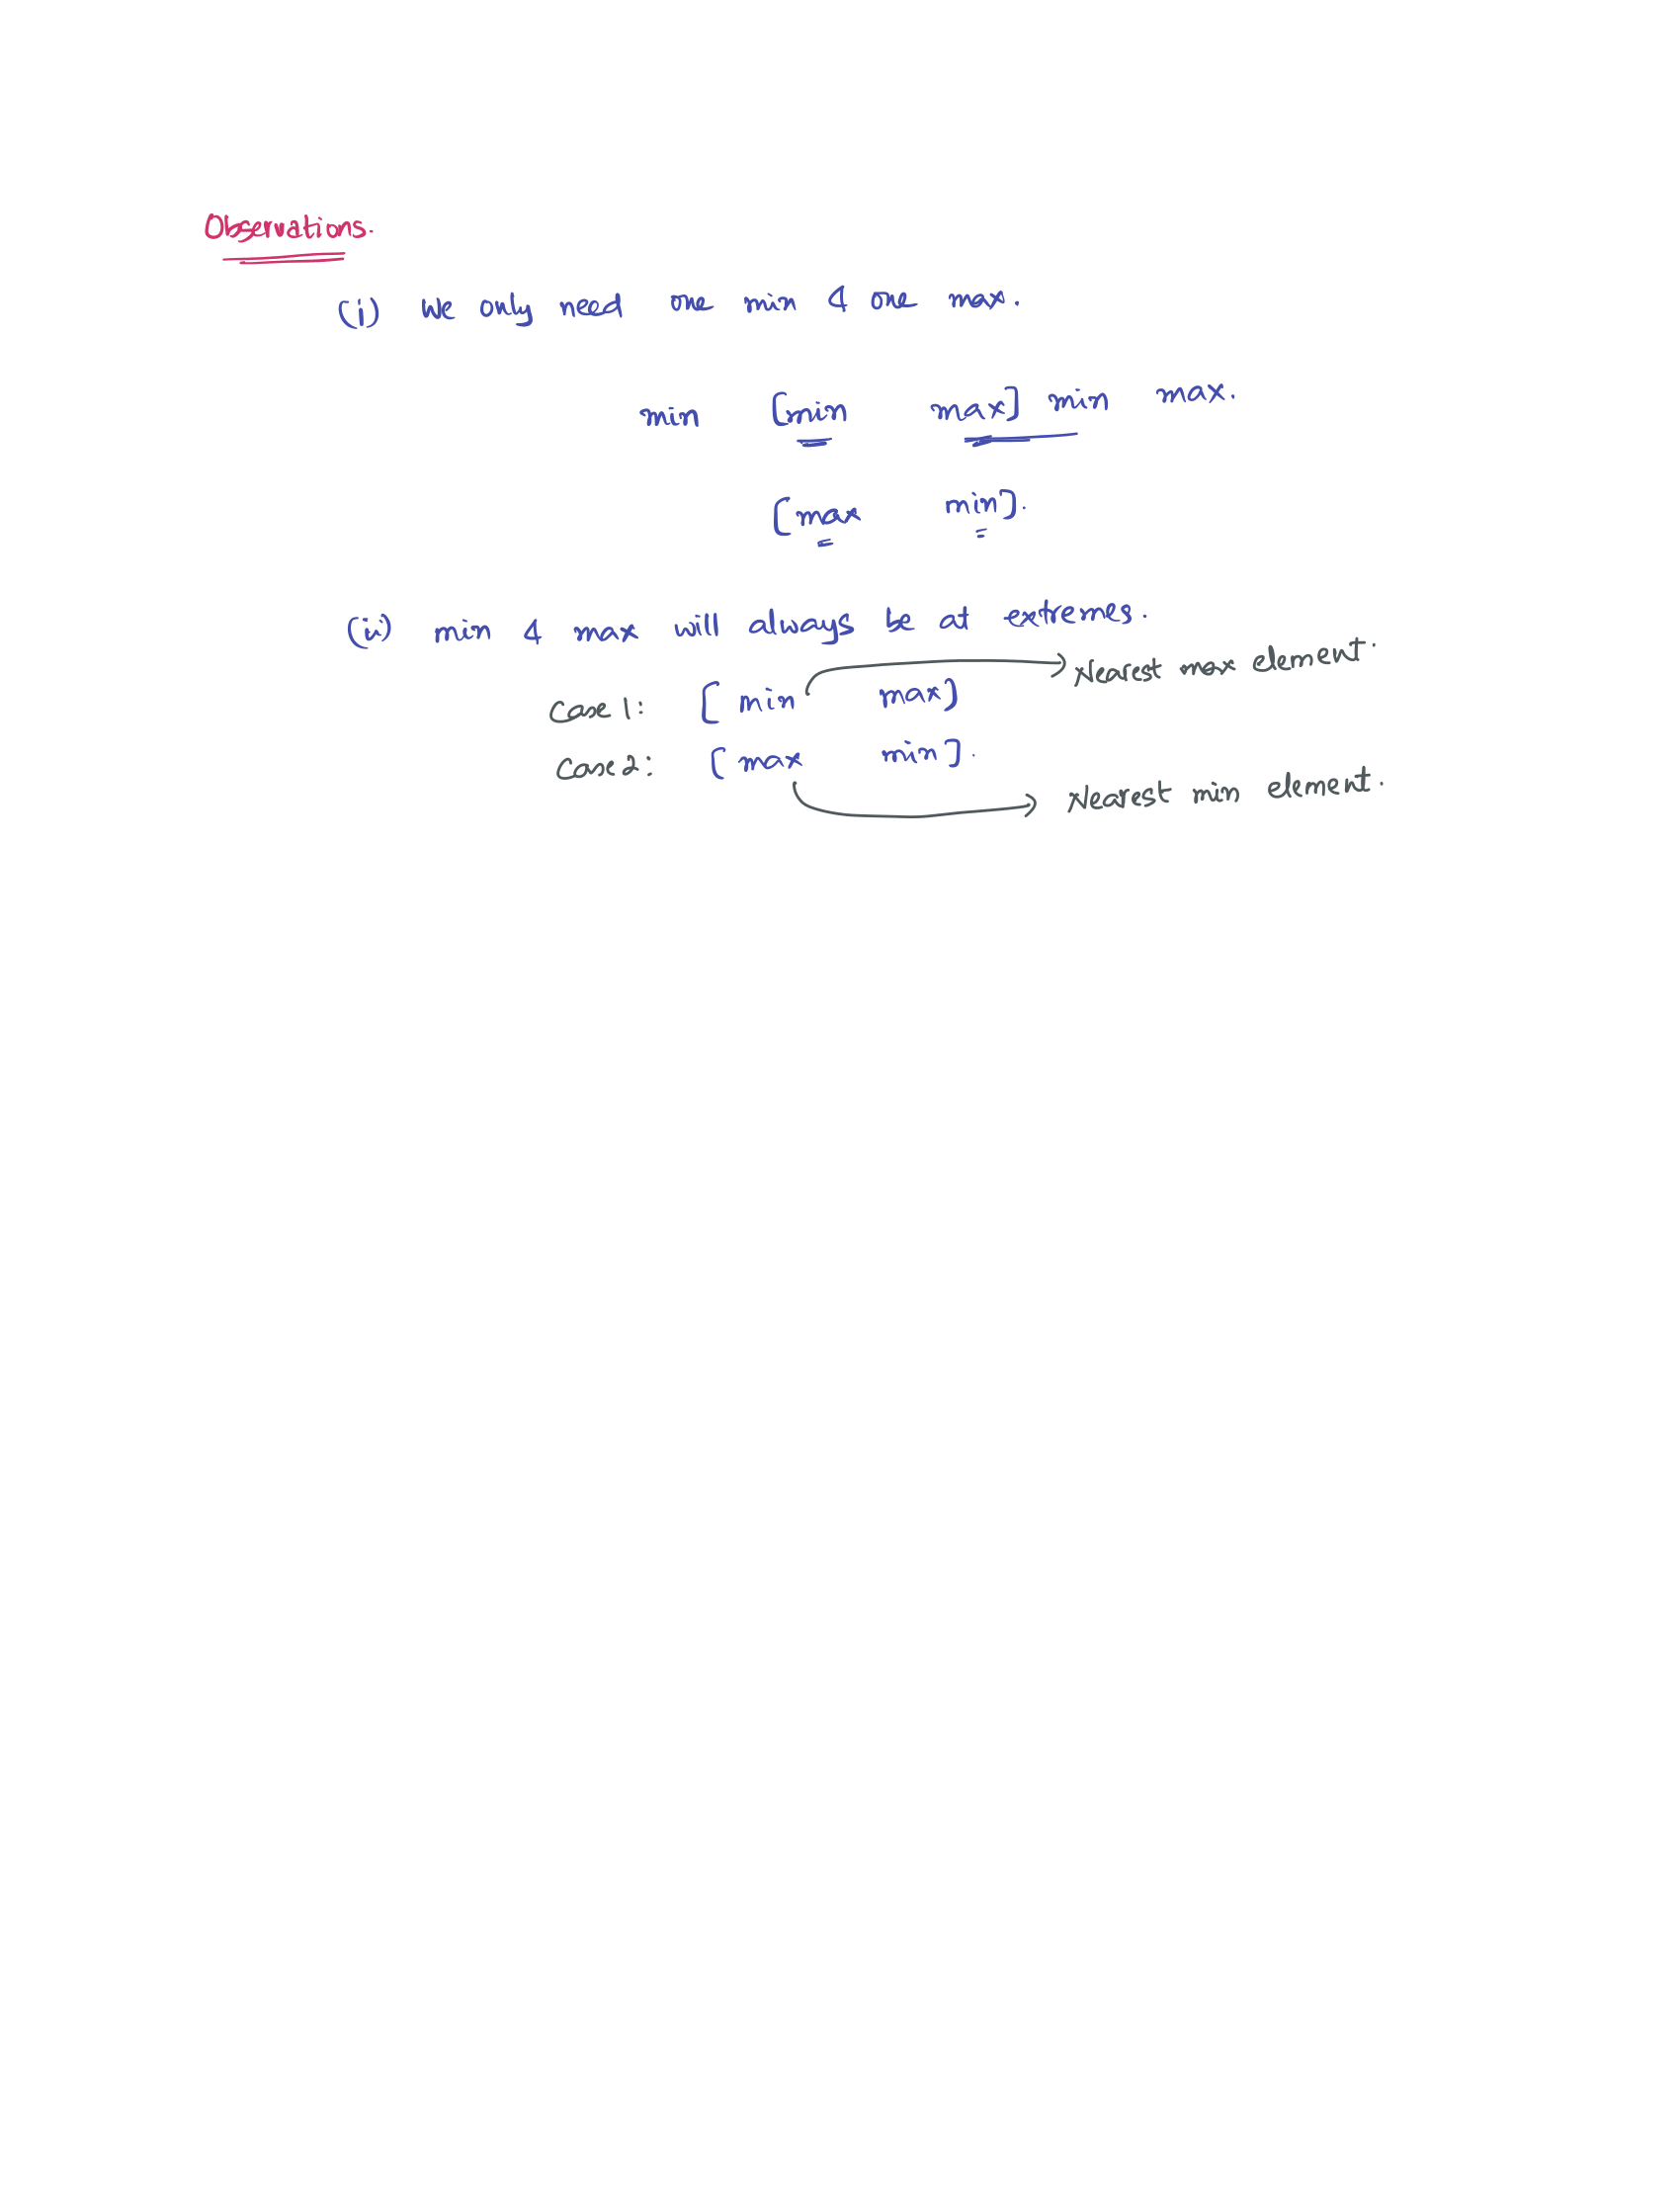 Observations.
(i) We only need one min & one max.
min [min max] min max.
[max min].
(ii) min & max will always be at extremes.
Case 1: [ min max] → Nearest max element.
Case 2: [ max min]. → Nearest min element.